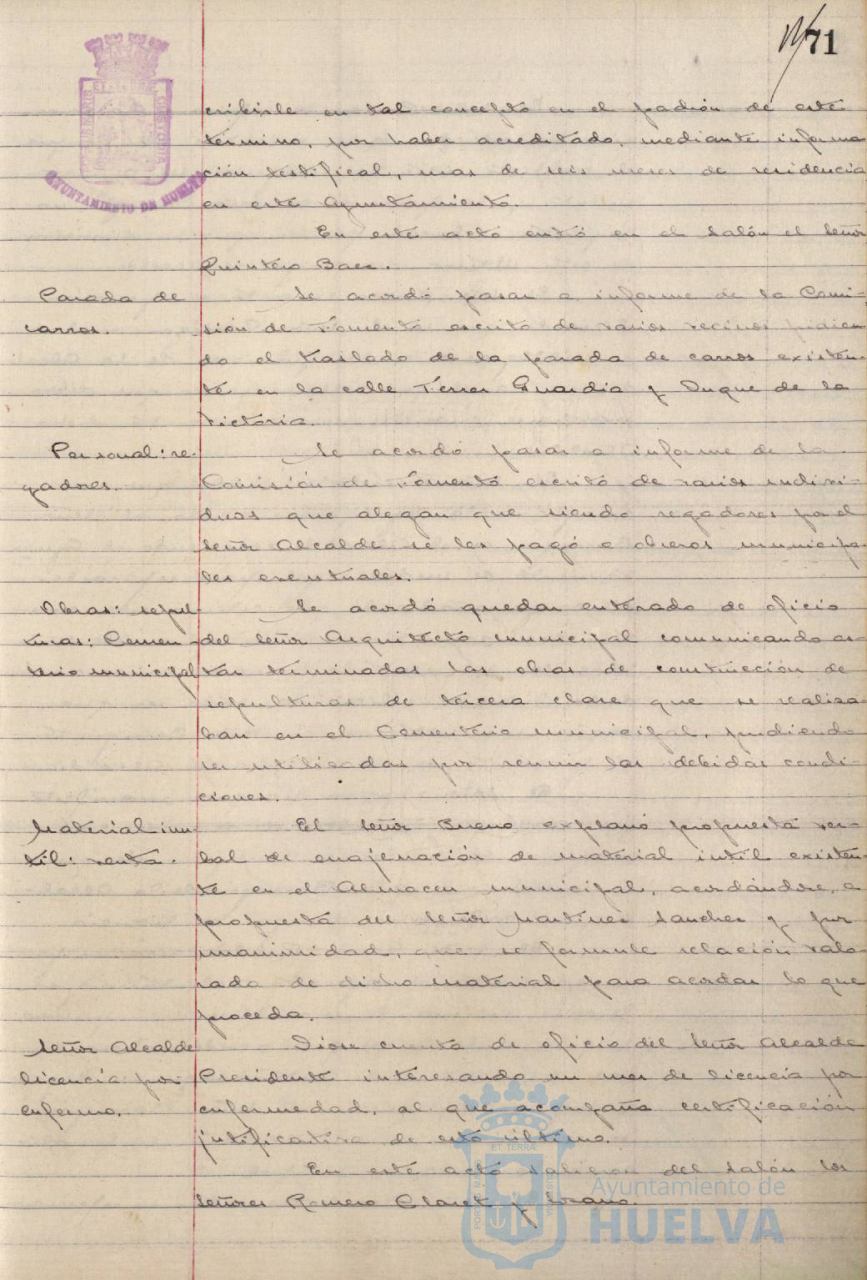 71
cribirle en tal concepto en el padrón de este
término, por haber acreditado, mediante informa
ción testifical, mas de seis meses de residencia
en este Ayuntamiento.
AYUNTAMIENTO DE HUELVA
En este acto entró en el salón el Señor
Quintero Baez.
Parada de
carros.
Se acordó pasar a informe de la Comi-
sión de Fomento escrito de varios vecinos pidien-
do el traslado de la parada de carros existen-
te en la calle Ferrer Guardia y Duque de la
Victoria.
Personal: re-
gadores.
Se acordó pasar a informe de la
Comisión de Fomento escrito de varios indivi-
duos que alegan que siendo regadores por el
Señor Alcalde se les pagó a obreros municipa-
les eventuales.
Obras: sepul-
turas: Cemen-
terio municipal
Se acordó quedar enterado de oficio
del Señor Arquitecto municipal comunicando es-
tar terminadas las obras de construcción de
sepulturas de tercera clase que se realiza-
ban en el Cementerio municipal, pudiendo
ser utilizadas por reunir las debidas condi-
ciones.
Material inu-
til: venta.
El Señor Bueno explanó propuesta ver-
bal de enajenación de material intil existen-
te en el Almacen municipal, acordándose, a
propuesta del Señor Martínez Sanchez y por
unanimidad, que se formule relación valo-
rada de dicho material para acordar lo que
proceda.
Señor Alcalde
licencia por
enfermo.
Diose cuenta de oficio del Señor Alcalde
Presidente interesando un mes de licencia por
enfermedad, al que acompaña certificación
justificativa de esto último.
En este acto salieron del salón los
Señores Romero Claret y
Ayuntamiento de
HUELVA